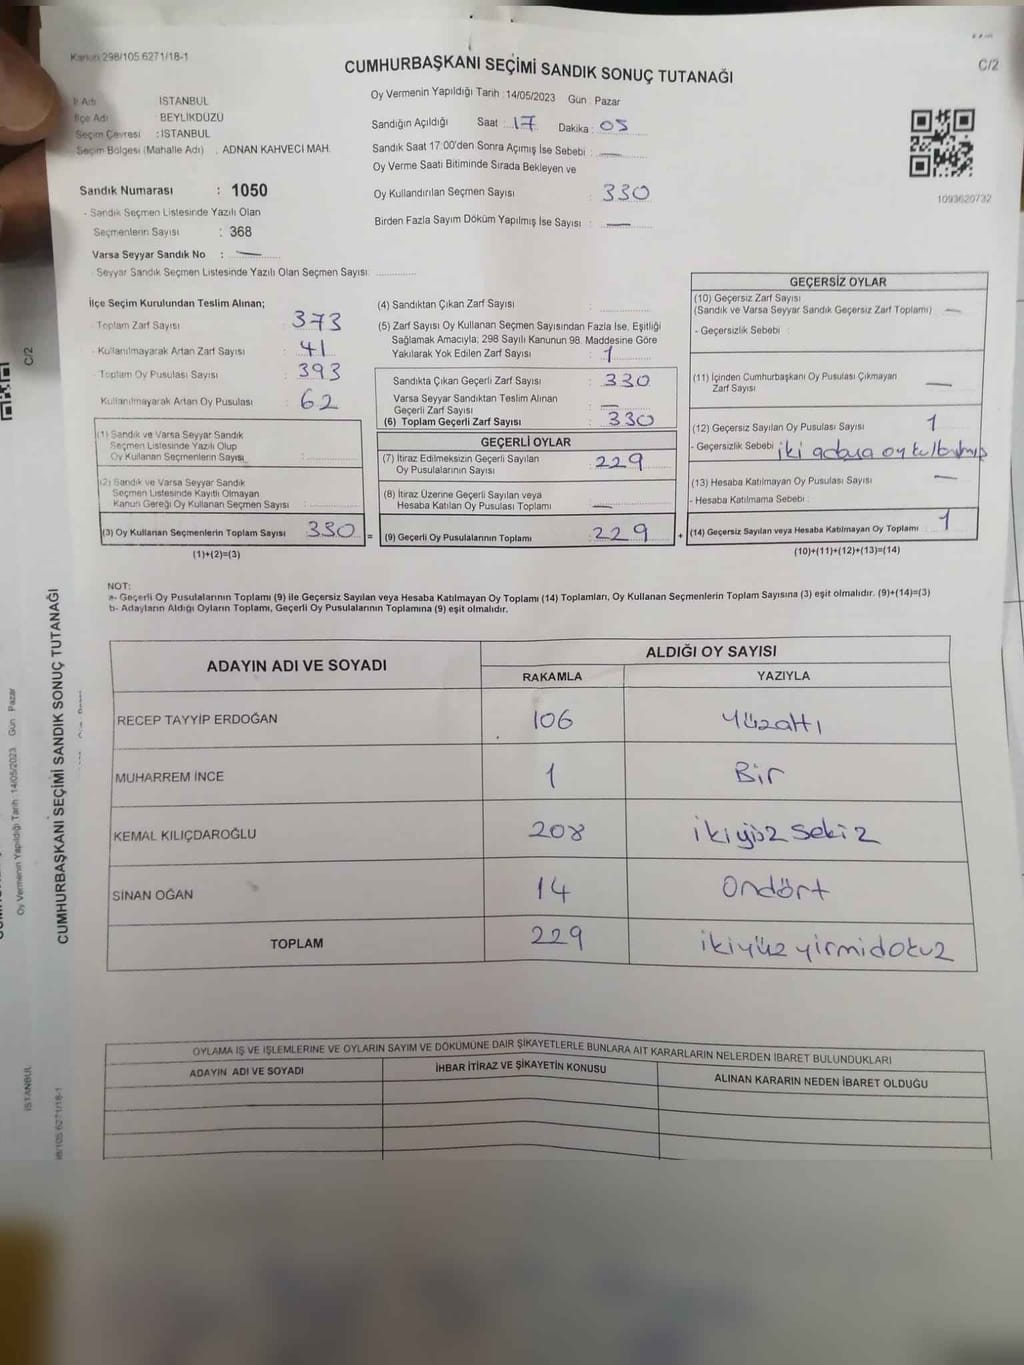 Kanun 298/105 6271/18-1
CUMHURBAŞKANI SEÇİMİ SANDIK SONUÇ TUTANAĞI
C/2
İl Adı İSTANBUL
İlçe Adı : BEYLİKDÜZÜ
Seçim Çevresi : İSTANBUL
Seçim Bölgesi (Mahalle Adı) . ADNAN KAHVECİ MAH.
Sandık Numarası : 1050
- Sandık Seçmen Listesinde Yazılı Olan
Seçmenlerin Sayısı : 368
Varsa Seyyar Sandık No : —
Seyyar Sandık Seçmen Listesinde Yazılı Olan Seçmen Sayısı
Oy Vermenin Yapıldığı Tarih : 14/05/2023 Gün : Pazar
Sandığın Açıldığı Saat : 17 Dakika : 05
Sandık Saat 17:00'den Sonra Açımış İse Sebebi : —
Oy Verme Saati Bitiminde Sırada Bekleyen ve
Oy Kullandırılan Seçmen Sayısı : 330
Birden Fazla Sayım Döküm Yapılmış İse Sayısı : —
1093620732
İlçe Seçim Kurulundan Teslim Alınan;
- Toplam Zarf Sayısı : 373
- Kullanılmayarak Artan Zarf Sayısı : 41
- Toplam Oy Pusulası Sayısı : 393
Kullanılmayarak Artan Oy Pusulası : 62
(1) Sandık ve Varsa Seyyar Sandık
Seçmen Listesinde Yazılı Olup
Oy Kullanan Seçmenlerin Sayısı :
(2) Sandık ve Varsa Seyyar Sandık
Seçmen Listesinde Kayıtlı Olmayan
Kanun Gereği Oy Kullanan Seçmen Sayısı :
(3) Oy Kullanan Seçmenlerin Toplam Sayısı 330
(1)+(2)=(3)
(4) Sandıktan Çıkan Zarf Sayısı :
(5) Zarf Sayısı Oy Kullanan Seçmen Sayısından Fazla İse, Eşitliği
Sağlamak Amacıyla; 298 Sayılı Kanunun 98. Maddesine Göre
Yakılarak Yok Edilen Zarf Sayısı : 1
Sandıkta Çıkan Geçerli Zarf Sayısı : 330
Varsa Seyyar Sandıktan Teslim Alınan
Geçerli Zarf Sayısı : —
(6) Toplam Geçerli Zarf Sayısı : 330
GEÇERLİ OYLAR
(7) İtiraz Edilmeksizin Geçerli Sayılan
Oy Pusulalarının Sayısı : 229
(8) İtiraz Üzerine Geçerli Sayılan veya
Hesaba Katılan Oy Pusulası Toplamı : —
= (9) Geçerli Oy Pusulalarının Toplamı : 229 +
GEÇERSİZ OYLAR
(10) Geçersiz Zarf Sayısı
(Sandık ve Varsa Seyyar Sandık Geçersiz Zarf Toplamı) : —
- Geçersizlik Sebebi :
(11) İçinden Cumhurbaşkanı Oy Pusulası Çıkmayan
Zarf Sayısı : —
(12) Geçersiz Sayılan Oy Pusulası Sayısı : 1
- Geçersizlik Sebebi : iki adaya oy
(13) Hesaba Katılmayan Oy Pusulası Sayısı : —
- Hesaba Katılmama Sebebi :
(14) Geçersiz Sayılan veya Hesaba Katılmayan Oy Toplamı : 1
(10)+(11)+(12)+(13)=(14)
NOT:
a- Geçerli Oy Pusulalarının Toplamı (9) ile Geçersiz Sayılan veya Hesaba Katılmayan Oy Toplamı (14) Toplamları, Oy Kullanan Seçmenlerin Toplam Sayısına (3) eşit olmalıdır. (9)+(14)=(3)
b- Adayların Aldığı Oyların Toplamı, Geçerli Oy Pusulalarının Toplamına (9) eşit olmalıdır.
ADAYIN ADI VE SOYADI ALDIĞI OY SAYISI
RAKAMLA YAZIYLA
RECEP TAYYİP ERDOĞAN 106 Yüzaltı
MUHARREM İNCE 1 Bir
KEMAL KILIÇDAROĞLU 208 ikiyüz sekiz
SİNAN OĞAN 14 Ondört
TOPLAM 229 ikiyüz yirmidokuz
OYLAMA İŞ VE İŞLEMLERİNE VE OYLARIN SAYIM VE DÖKÜMÜNE DAİR ŞİKAYETLERLE BUNLARA AİT KARARLARIN NELERDEN İBARET BULUNDUKLARI
ADAYIN ADI VE SOYADI İHBAR İTİRAZ VE ŞİKAYETİN KONUSU ALINAN KARARIN NEDEN İBARET OLDUĞU
C/2
CUMHURBAŞKANI SEÇİMİ SANDIK SONUÇ TUTANAĞI
Oy Vermenin Yapıldığı Tarih : 14/05/2023 Gün : Pazar
İSTANBUL
98/105 6271/18-1